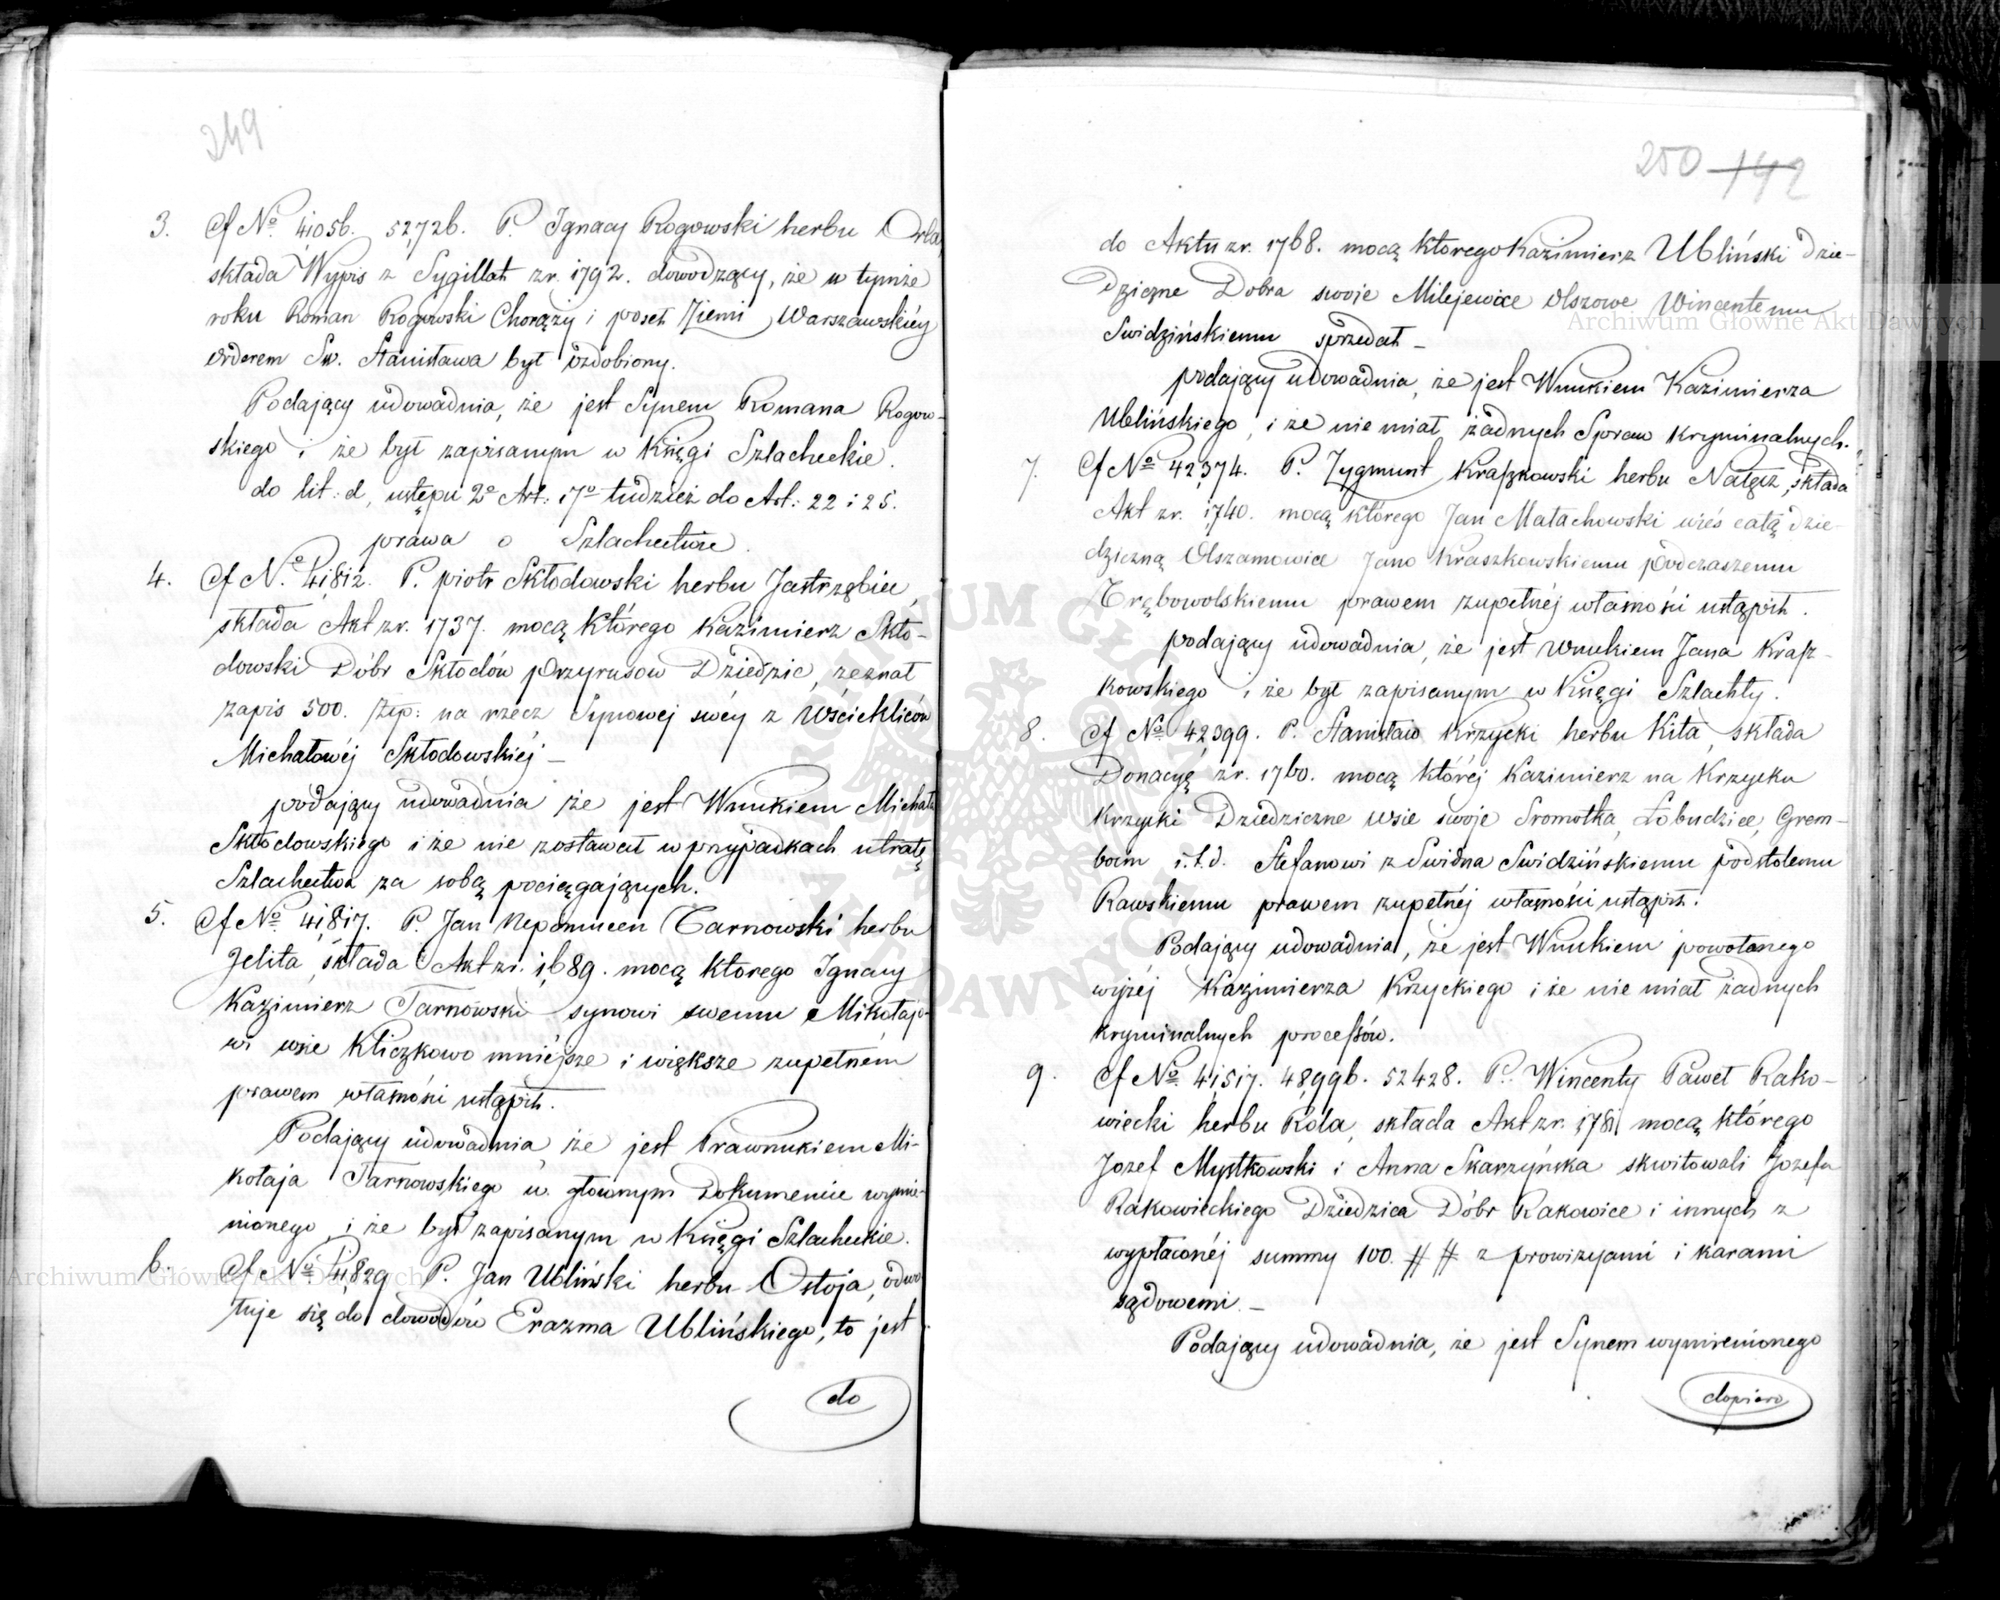 249
3. Nº 41056. 52,726. P. Ignacy Rogowski herbu Orla,
składa Wypis z Sygillat z r. 1792. dowodzący, że w tymże
roku Roman Rogowski Chorąży i poseł Ziemi Warszawskiéy
orderem Sw. Stanisława był ozdobiony.
Podający udowadnia, że jest Synem Romana Rogow-
skiego i że był zapisanym w Księgi Szlacheckie.
do lit: d, ustępu 2º Art: 17º tudzież do Art: 22 i 25.
prawa o Szlachectwie.
4. Nº 41,812. P. piotr Skłodowski herbu Jastrzębiec,
składa Akt z r. 1737. mocą którego Kazimierz Skło-
dowski Dóbr Skłodów przyrusow Dziedzic, zeznał
zapis 500. złp: na rzecz Synowej swéy z Wścieklicow
Michałowéj Skłodowskiéj –
podający udowadnia że jest Wnukiem Michała
Skłodowskiego i że nie zostawał w przypadkach utratę
Szlachectwa za sobą pociągających.
5. Nº 41,817. P. Jan Nepomucen Tarnowski herbu
Jelita, składa Akt z r. 1689. mocą ktorego Ignacy
Kazimierz Tarnowski synowi swemu Mikołajo-
wi wsie Kliczkowo mniéjsze i większe zupełném
prawem własności ustąpił.
Podający udowadnia że jest Prawnukiem Mi-
kołaja Tarnowskiego w głownym Dokumencie wymie-
nionego, i że był zapisanym w Księgi Szlacheckie.
6. Nº 41,829 P. Jan Ubliński herbu Ostoja, odwo
łuje się do dowodów Erazma Ublińskiego, to jest
do
250 142
do Aktu z r. 1768. mocą ktorego Kazimierz Ubliński Dzie-
dziczne Dobra swoje Milejewice Olszowe Wincentemu
Swidzińskiemu sprzedał –
podający udowadnia, że jest Wnukiem Kazimierza
Ublińskiego, i że nie miał żadnych Spraw kryminalnych.
7. Nº 42,374. P. Zygmunt Kraszkowski herbu Nałęcz, składa
Akt z r. 1740. mocą którego Jan Małachowski wieś całą dzie-
dziczną Olszamowice Jano Kraszkowskiemu podczaszemu
Trębowolskiemu prawem zupełnéj własności ustąpił.
podający udowadnia, że jest Wnukiem Jana Krasz-
kowskiego i że był zapisanym w Księgi Szlachty.
8. Nº 42,399. P. Stanisław Krzycki herbu Kita, składa
Donacyę z r. 1760. mocą któréj Kazimierz na Krzycku
Krzycki Dziedziczne wsie swoje Sromotka, Łobudzice, Grem-
boin i.t.d. Stefanowi z Swidna Swidzińskiemu podstolemu
Rawskiemu prawem zupełnéj własności ustąpił.
Podający udowadnia, że jest Wnukiem powołanego
wyżéj Kazimierza Krzyckiego i że nie miał żadnych
kryminalnych processów.
9. Nº 41,517. 48,996. 52428. P. Wincenty Paweł Rako-
wiecki herbu Rola, składa Akt z r. 1781 mocą którego
Jozef Mystkowski i Anna Skarzyńska skwitowali Jozefa
Rakowieckiego Dziedzica Dóbr Rakowice i innych z
wypłaconéj summy 100. ## z prowizyami i karami
sądowemi. –
Podający udowadnia, że jest Synem wymienionego
dopiero
Archiwum Główne Akt Dawnych
Archiwum Główne Akt Dawnych
ARCHIWUM GŁÓWNE AKT DAWNYCH